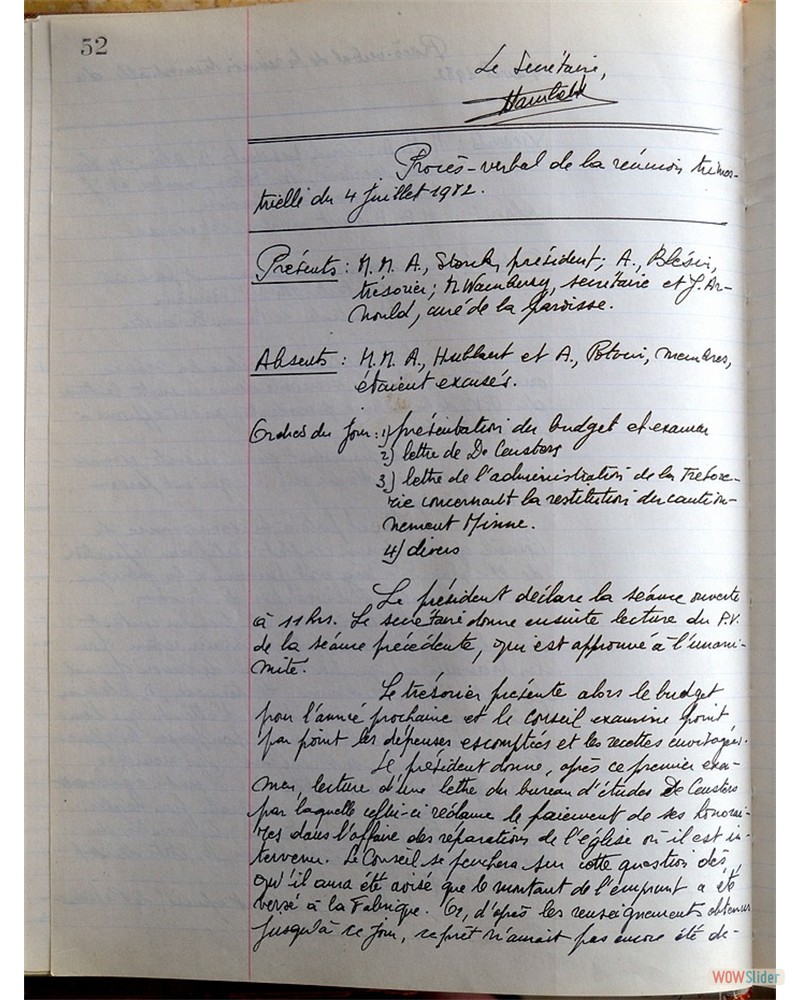 52
Le Secrétaire,
Procès-verbal de la réunion trimes-
trielle du 4 Juillet 1982.
Présents : M.M. A., Storck, président; A., Blésin,
trésorier; M. secrétaire et J. Ar-
nould, curé de la Paroisse.
Absents : M.M. A., Hubbaut et A., Potvin, membres,
étaient excusés.
Ordres du Jour : 1) présentation du budget et examen
2) lettre de De Ceusters
3) lettre de l'administration de la Trésore-
rie concernant la restitution du caution-
nement Minne.
4) divers
Le président déclare la séance ouverte
à 11 hrs. Le secrétaire donne ensuite lecture du P.V.
de la séance précédente, qui est approuvé à l'unani-
mité.
Le trésorier présente alors le budget
pour l'année prochaine et le Conseil examine point
par point les dépenses escomptées et les recettes envisagées.
Le président donne, après ce premier exa-
men, lecture d'une lettre du bureau d'études De Ceusters
par laquelle celui-ci réclame le paiement de ses honorai-
res dans l'affaire des réparations de l'église où il est in-
tervenu. Le Conseil se penchera sur cette question dès
qu'il aura été avisé que le montant de l'emprunt a été
versé à la Fabrique. Or, d'après les renseignements obtenus
jusqu'à ce jour, ce prêt n'aurait pas encore été dé-
WOWSlider